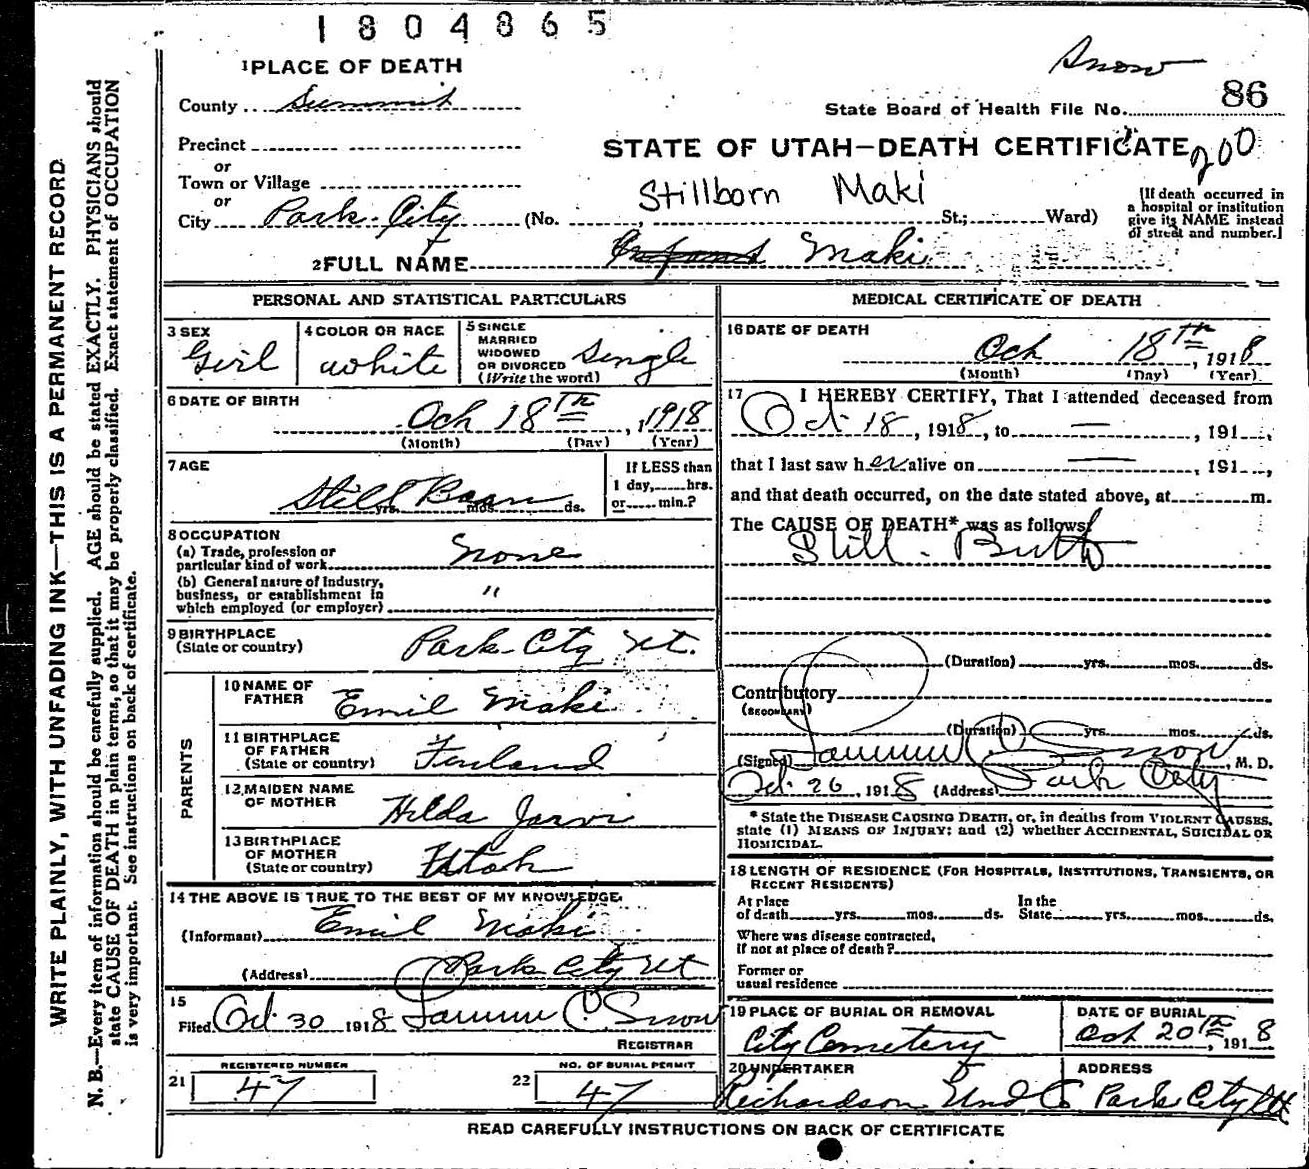 1804865
Snow
1 PLACE OF DEATH
County Summit
State Board of Health File No. 86
Precinct
or
Town or Village
or
City Park City (No. St.; Ward)
STATE OF UTAH—DEATH CERTIFICATE 200
Stillborn Maki
[If death occurred in
a hospital or institution
give its NAME instead
of street and number.]
2 FULL NAME Maki
PERSONAL AND STATISTICAL PARTICULARS
3 SEX
Girl
4 COLOR OR RACE
white
5 SINGLE
MARRIED
WIDOWED
OR DIVORCED
(Write the word)
Single
6 DATE OF BIRTH
Och 18th, 1918
(Month) (Day) (Year)
7 AGE
Still Boan
yrs. mos. ds.
If LESS than
1 day, hrs.
or min.?
8 OCCUPATION
(a) Trade, profession or
particular kind of work None
(b) General nature of Industry,
business, or establishment in
which employed (or employer) "
9 BIRTHPLACE
(State or country) Park City Ut.
PARENTS
10 NAME OF
FATHER Emil Maki
11 BIRTHPLACE
OF FATHER
(State or country) Finland
12 MAIDEN NAME
OF MOTHER Hilda Jarvi
13 BIRTHPLACE
OF MOTHER
(State or country) Utah
14 THE ABOVE IS TRUE TO THE BEST OF MY KNOWLEDGE.
(Informant) Emil Maki
(Address) Park City Ut
15
Filed Oct. 30 1918 C. Snow
REGISTRAR
REGISTERED NUMBER
21 47
NO. OF BURIAL PERMIT
22 47
MEDICAL CERTIFICATE OF DEATH
16 DATE OF DEATH
Och 18th, 1918
(Month) (Day) (Year)
17 I HEREBY CERTIFY, That I attended deceased from
Oct. 18, 1918, to —, 191 ,
that I last saw her alive on —, 191 ,
and that death occurred, on the date stated above, at m.
The CAUSE OF DEATH* was as follows:
Still - Birth
(Duration) yrs. mos. ds.
Contributory
(SECONDARY)
(Duration) yrs. mos. ds.
(Signed) C. Snow, M. D.
Oct. 26, 1918 (Address) Park City
* State the DISEASE CAUSING DEATH, or, in deaths from VIOLENT CAUSES,
state (1) MEANS OF INJURY; and (2) whether ACCIDENTAL, SUICIDAL OR
HOMICIDAL.
18 LENGTH OF RESIDENCE (FOR HOSPITALS, INSTITUTIONS, TRANSIENTS, OR
RECENT RESIDENTS)
At place
of death yrs. mos. ds.
In the
State yrs. mos. ds.
Where was disease contracted,
if not at place of death?
Former or
usual residence
19 PLACE OF BURIAL OR REMOVAL
City Cemetery
DATE OF BURIAL
Och 20th, 1918
20 UNDERTAKER
Richardson Und Co
ADDRESS
Park City Ut
READ CAREFULLY INSTRUCTIONS ON BACK OF CERTIFICATE
WRITE PLAINLY, WITH UNFADING INK—THIS IS A PERMANENT RECORD
N. B.—Every item of information should be carefully supplied. AGE should be stated EXACTLY. PHYSICIANS should
state CAUSE OF DEATH in plain terms, so that it may be properly classified. Exact statement of OCCUPATION
is very important. See instructions on back of certificate.